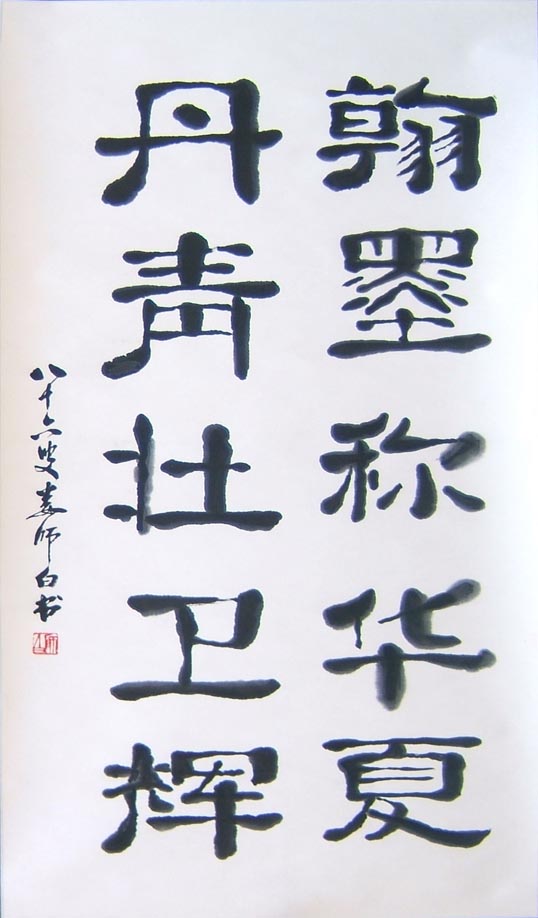 翰墨称华夏
丹青壮卫辉
八十六叟娄师白书